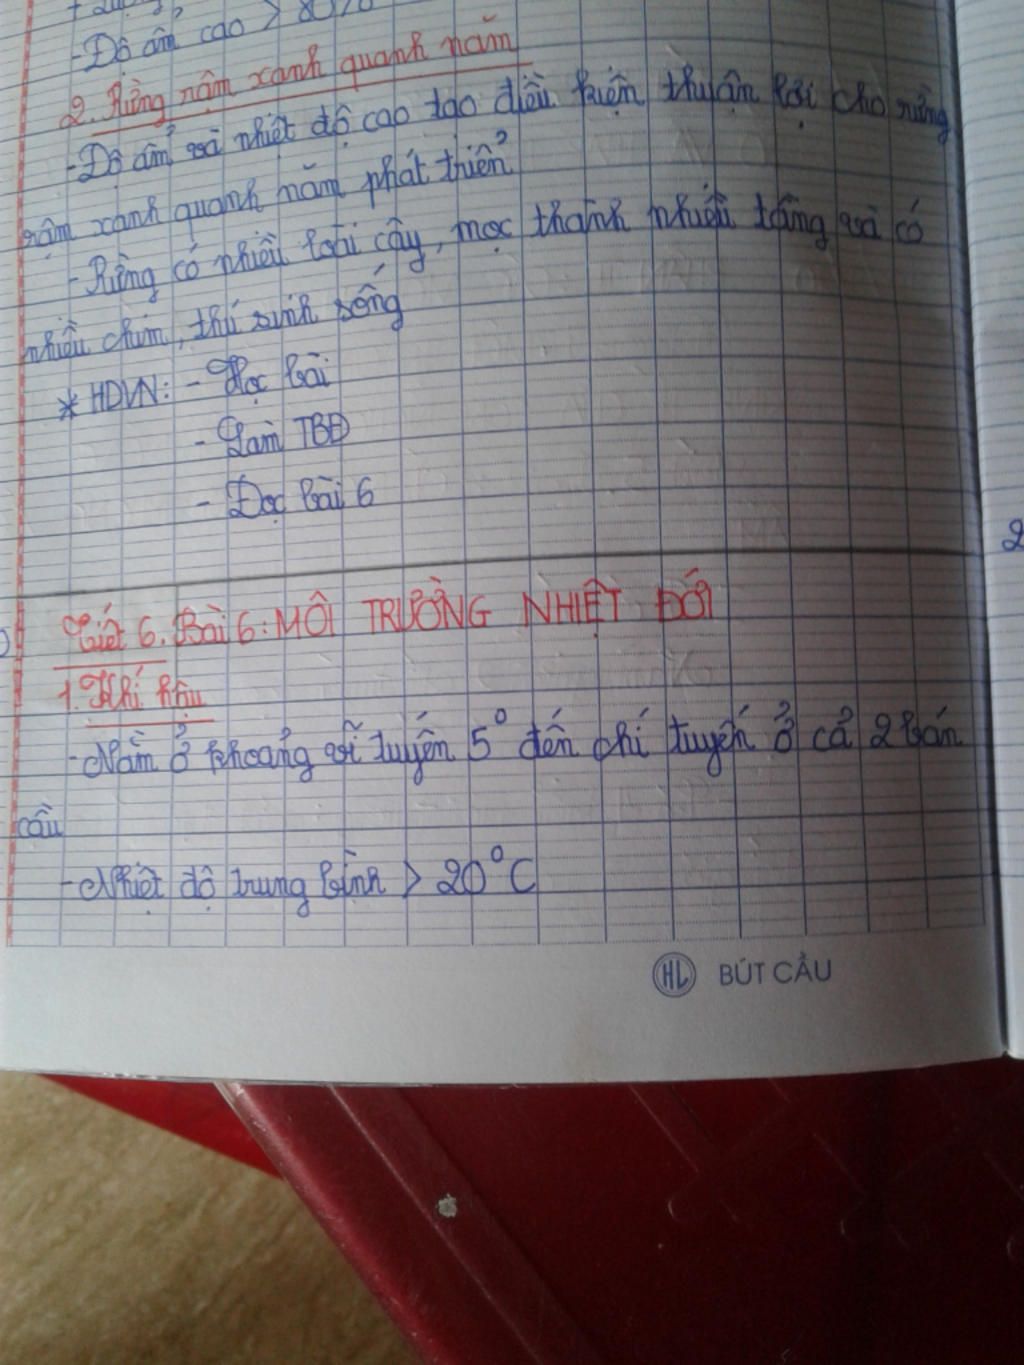 - Độ ẩm cao > 80%
2. Rừng rậm xanh quanh năm
- Độ ẩm và nhiệt độ cao tạo điều kiện thuận lợi cho rừng
rậm xanh quanh năm phát triển
- Rừng có nhiều loài cây, mọc thành nhiều tầng và có
nhiều chim, thú sinh sống
* HDVN: - Học bài
- Làm TBĐ
- Đọc bài 6
Tiết 6. Bài 6: MÔI TRƯỜNG NHIỆT ĐỚI
1. Khí hậu
- Nằm ở khoảng vĩ tuyến 5° đến chí tuyến ở cả 2 bán
cầu
- Nhiệt độ trung bình > 20°C
HL BÚT CẦU
2